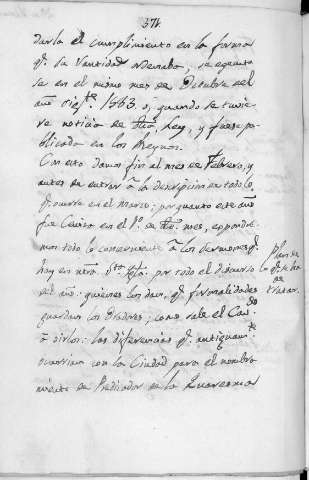 371
darle el cumplimiento en la forma
qe. la Santidad ordenaba, se egecuta
se en el mismo mes de Octubre del
año sigte. 1563. o, quando se tuvie
re noticia de dha. Ley, y fuese pu
blicada en los Reynos.
Con esto damos fin al mes de Febrero, y
antes de entrar à la descripcion en todo lo
qe. ocurra en el Marzo; por quanto este año
fue Ceniza en el 1º. de dho. mes, expondre
mos todo lo concerniente à los Sermones qe.
hay en ntra. Sta. Iglª. por todo el discurso
del año: quienes los dan, qe. formalidades
guardan los Oradores; como sale el Cavdo.
à oirlos: las diferencias qe. antiguamte.
ocurrian con la Ciudad para el nombra
miento de Predicador en la Quaresma
Plan de
lo qe. se ha
de
tratar.